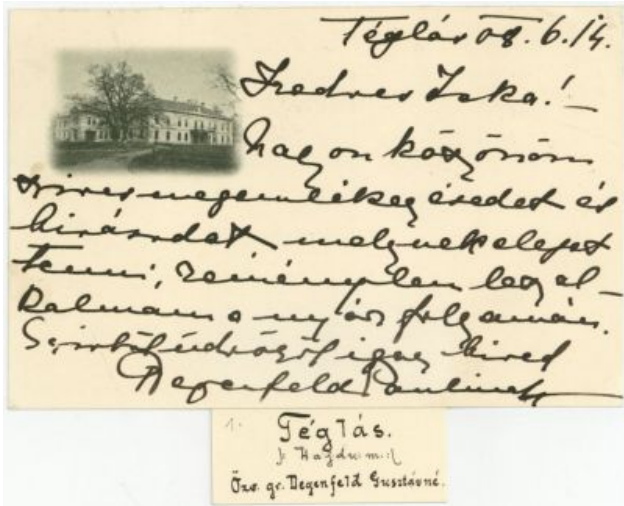 Téglás 08. 6./4.
Kedves Iska!
Nagyon köszönöm
szives megemlékezésedet és
hivásodat melynek eleget
tenni, reménylem lesz al-
kalmam a nyár folyamán.
Szivből üdvözöl igaz hived
Degenfeld Paulina
1.
Téglás.
/: Hajdu m.:/
Özv. gr. Degenfeld Gusztávné.